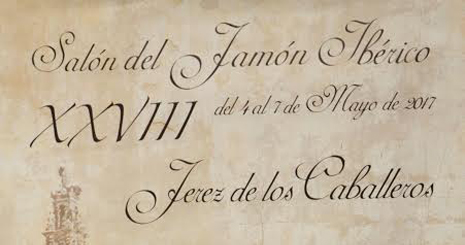 Salón del Jamón Ibérico
XXVIII del 4 al 7 de Mayo de 2017
Jerez de los Caballeros